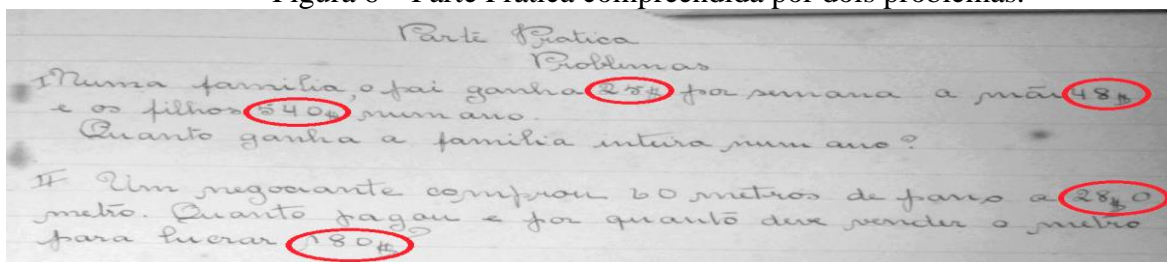 Figura – Parte Prática compreendida por dois problemas.
Parte Pratica
Problemas
I Numa familia, o pai ganha 25$ por semana a mãe 48$
e os filhos 540$ num ano.
Quanto ganha a familia inteira num ano?
II Um negociante comprou 60 metros de pano a 28$ o
metro. Quanto pagou e por quanto deve vender o metro
para lucrar 180$?